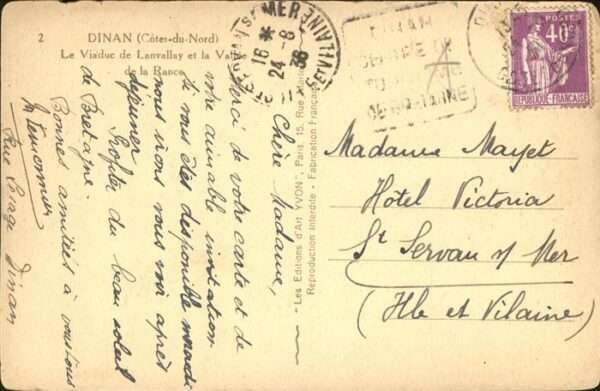 2 DINAN (Côtes-du-Nord)
Le Viaduc de Lanvallay et la Vallée
de la Rance
Chère Madame,
Merci de votre carte et de
votre aimable invitation
si vous êtes disponible mardi
nous irons vous voir après
déjeuner
Profitez du beau soleil
de Bretagne.
Bonnes amitiés à vous tous
Rue Dinan
Les Editions d'Art "YVON", Paris, 15, Rue
Reproduction Interdite - Fabrication Française
16 *
24 - 8
36
MER
ILLE ET VILAINE
DINAN
POSTES
40c
REPUBLIQUE FRANÇAISE
Madame Mayet
Hôtel Victoria
St Servan s/ Mer
(Ille et Vilaine)